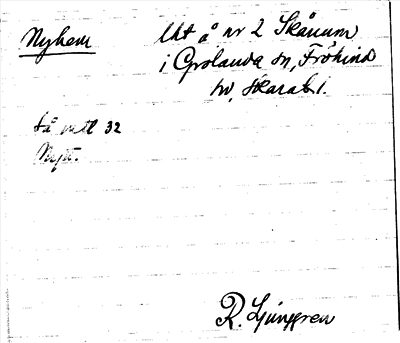 Nyhem
Uht å nr 2 Skånum
i Grolanda sn, Frökind
hd, Skarab l.
så uttl 32
Nytt.
R. Ljunggren